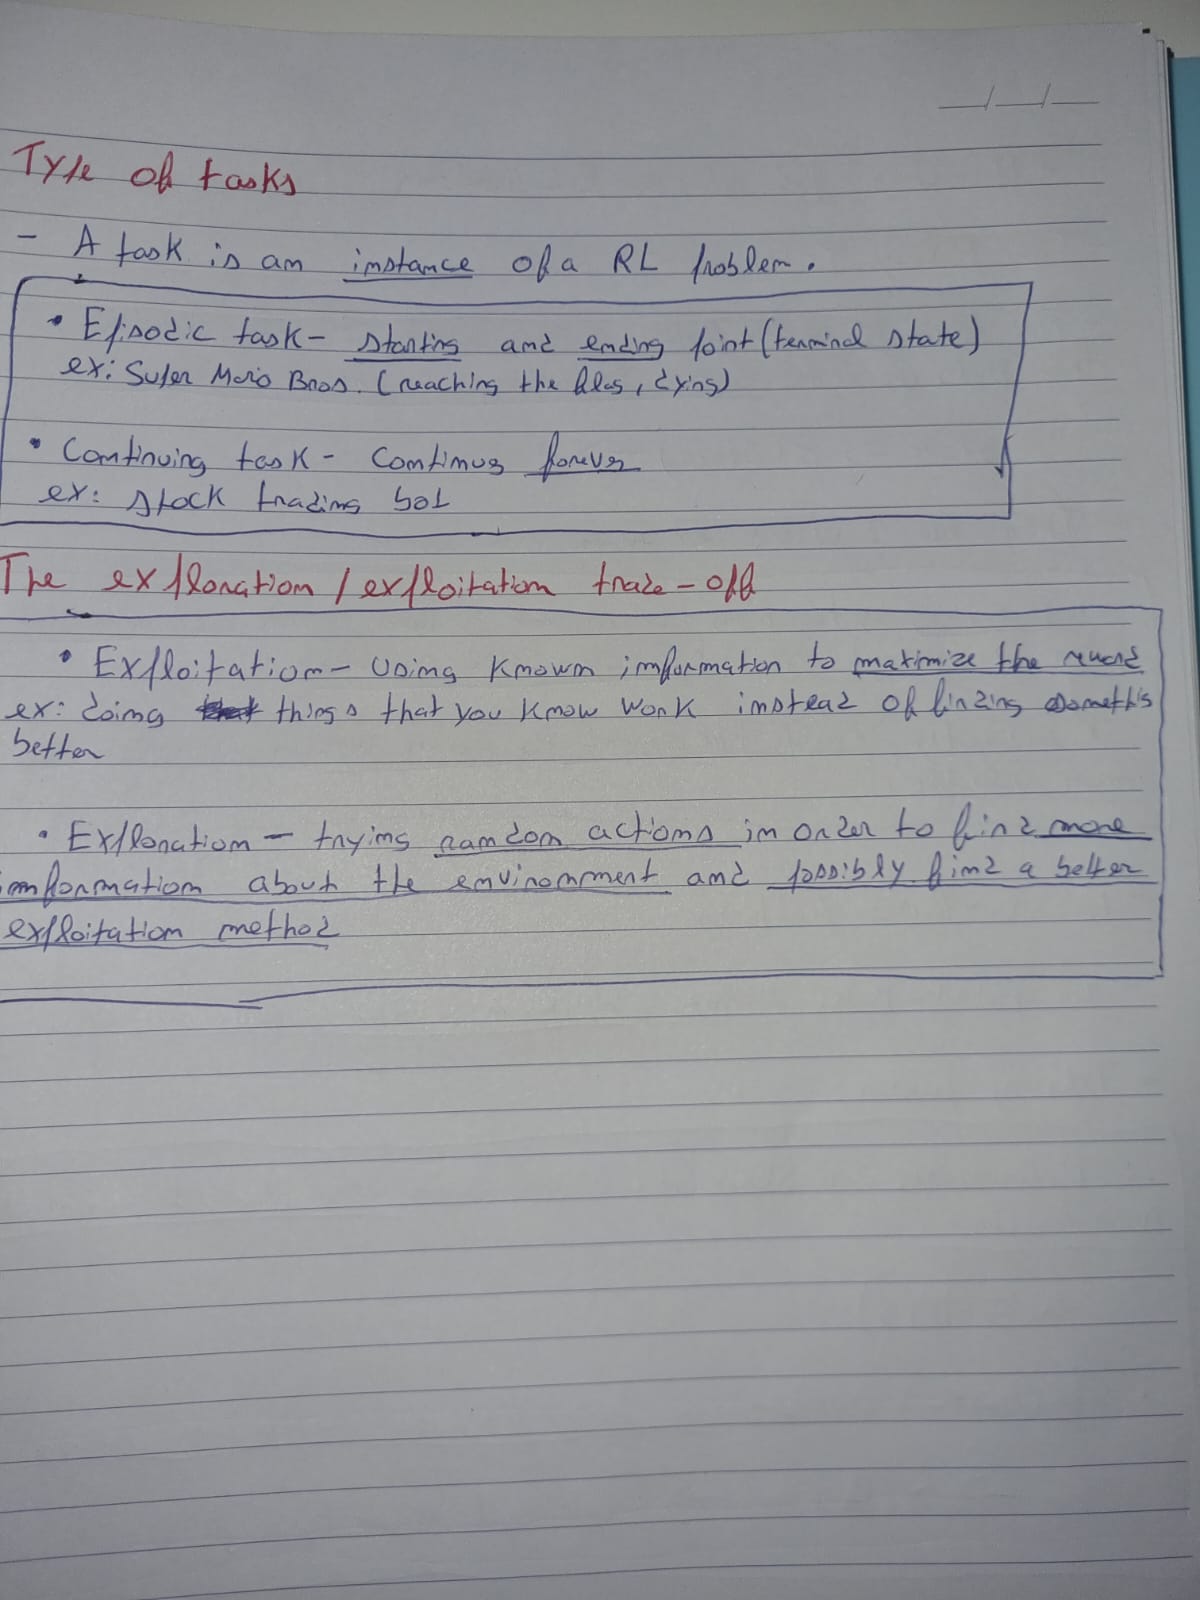 Type of tasks
- A task is an instance of a RL problem.
• Episodic task - starting and ending point (terminal state)
ex: Super Mario Bros. (reaching the flag, dying)
• Continuing task - continues forever
ex: stock trading bot
The exploration / exploitation trade-off
• Exploitation - Using known information to maximize the reward
ex: doing things that you know work instead of finding something
better
• Exploration - trying random actions in order to find more
information about the environment and possibly find a better
exploitation method